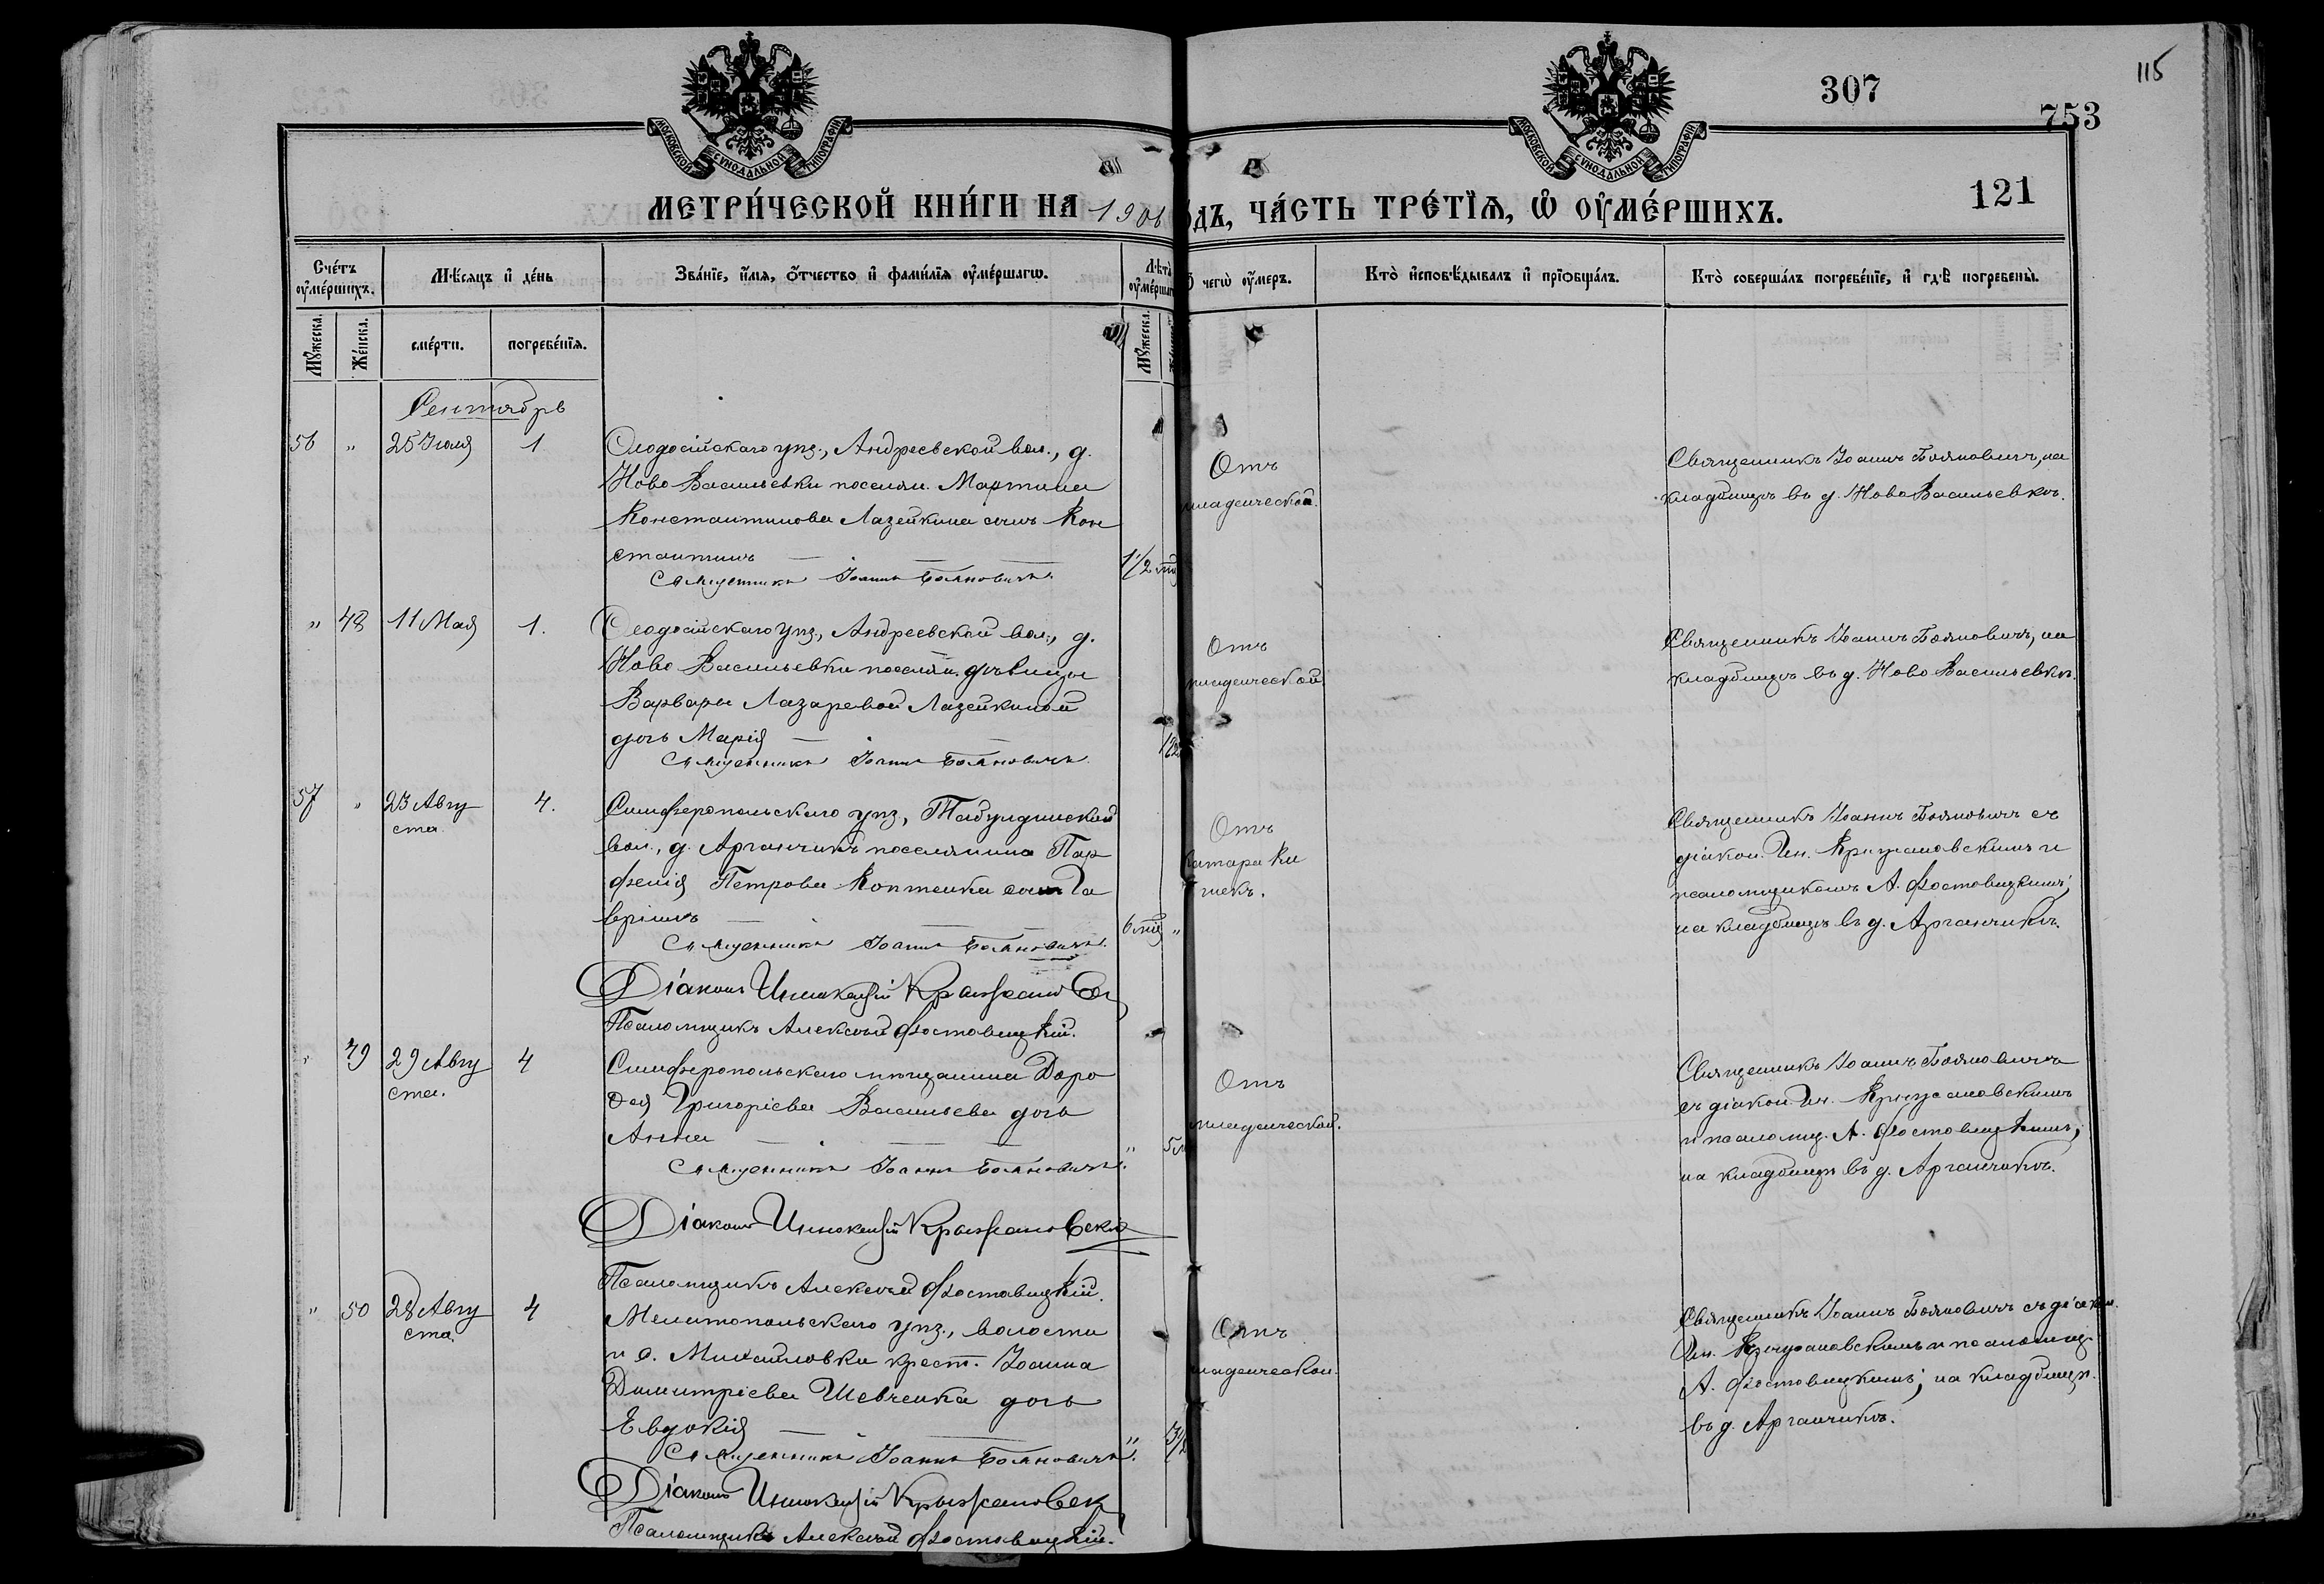 115
307
753
121
МОСКОВСКОЙ СѴНОДАЛЬНОЙ ТИПОГРАФІИ
МОСКОВСКОЙ СѴНОДАЛЬНОЙ ТИПОГРАФІИ
МЕТРИ́ЧЕСКОЙ КНИ́ГИ НА 1906
ОДЪ, ЧА́СТЬ ТРЕ́ТЇѦ, Ѡ҆ ОУ҆МЕ́РШИХЪ.
Счетъ оумершихъ.
Мѣсяцъ и день
Званїе, имя, отчество и фамилїя оумершагѡ.
Лѣта оумершаг
чегѡ оумеръ.
Кто исповѣдывалъ и прїобщалъ.
Кто совершалъ погребенїе, и гдѣ погребены.
Мужеска.
Женска.
смерти.
погребенїя.
Мужеска.
Сентябрь
56 " 25 Іюля 1
Ѳеодосійскаго уѣз., Андреевской вол., д.
Ново Васильевки поселян. Мартина
Константинова Лазейкина сынъ Кон
стантинъ
1 1/2
Священникъ Іоаннъ Бояновичъ.
Отъ
младенческой.
Священникъ Іоаннъ Бояновичъ, на
кладбищѣ въ д. Ново Васильевкѣ.
" 48 11 Мая 1.
Ѳеодосійскаго уѣз., Андреевской вол., д.
Ново Васильевки поселян. дѣвицы
Варвары Лазаревой Лазейкиной
дочь Марія
Священникъ Іоаннъ Бояновичъ.
Отъ
младенческой
Священникъ Іоаннъ Бояновичъ, на
кладбищѣ въ д. Ново Васильевкѣ.
57 " 23 Авгу
ста 4.
Симферопольскаго уѣз., Табулдинской
вол., д. Арганчикъ поселянина Пар
ѳенія Петрова Коптенка сынъ Га
вріилъ
6 "
Священникъ Іоаннъ Бояновичъ.
Діаконъ Иннокентій Крыжановск
Псаломщикъ Алексѣй Фостовицкій.
Отъ
катара ки
шекъ.
Священникъ Іоаннъ Бояновичъ съ
діакон. Ин. Крыжановскимъ и
псаломщикомъ А. Фостовицкимъ;
на кладбищѣ въ д. Арганчикѣ.
" 49 29 Авгу
ста. 4
Симферопольскаго мѣщанина Доро
ѳея Григоріева Васильева дочь
Анна
" 5
Священникъ Іоаннъ Бояновичъ.
Діаконъ Иннокентій Крыжановскій
Псаломщикъ Алексѣй Фостовицкій.
Отъ
младенческой.
Священникъ Іоаннъ Бояновичъ
съ діакон. Ин. Крыжановскимъ
и псаломщ. А. Фостовицкимъ;
на кладбищѣ въ д. Арганчикѣ.
" 50 28 Авгу
ста 4
Мелитопольскаго уѣз., волости
и с. Михайловки крест. Іоанна
Димитріева Шевченка дочь
Евдокія
"
Священникъ Іоаннъ Бояновичъ.
Діаконъ Иннокентій Крыжановск
Псаломщикъ Алексѣй Фостовицкій.
Отъ
младенческой.
Священникъ Іоаннъ Бояновичъ съ діакон.
Ин. Крыжановскимъ и псаломщ.
А. Фостовицкимъ; на кладбищѣ
въ д. Арганчикѣ.